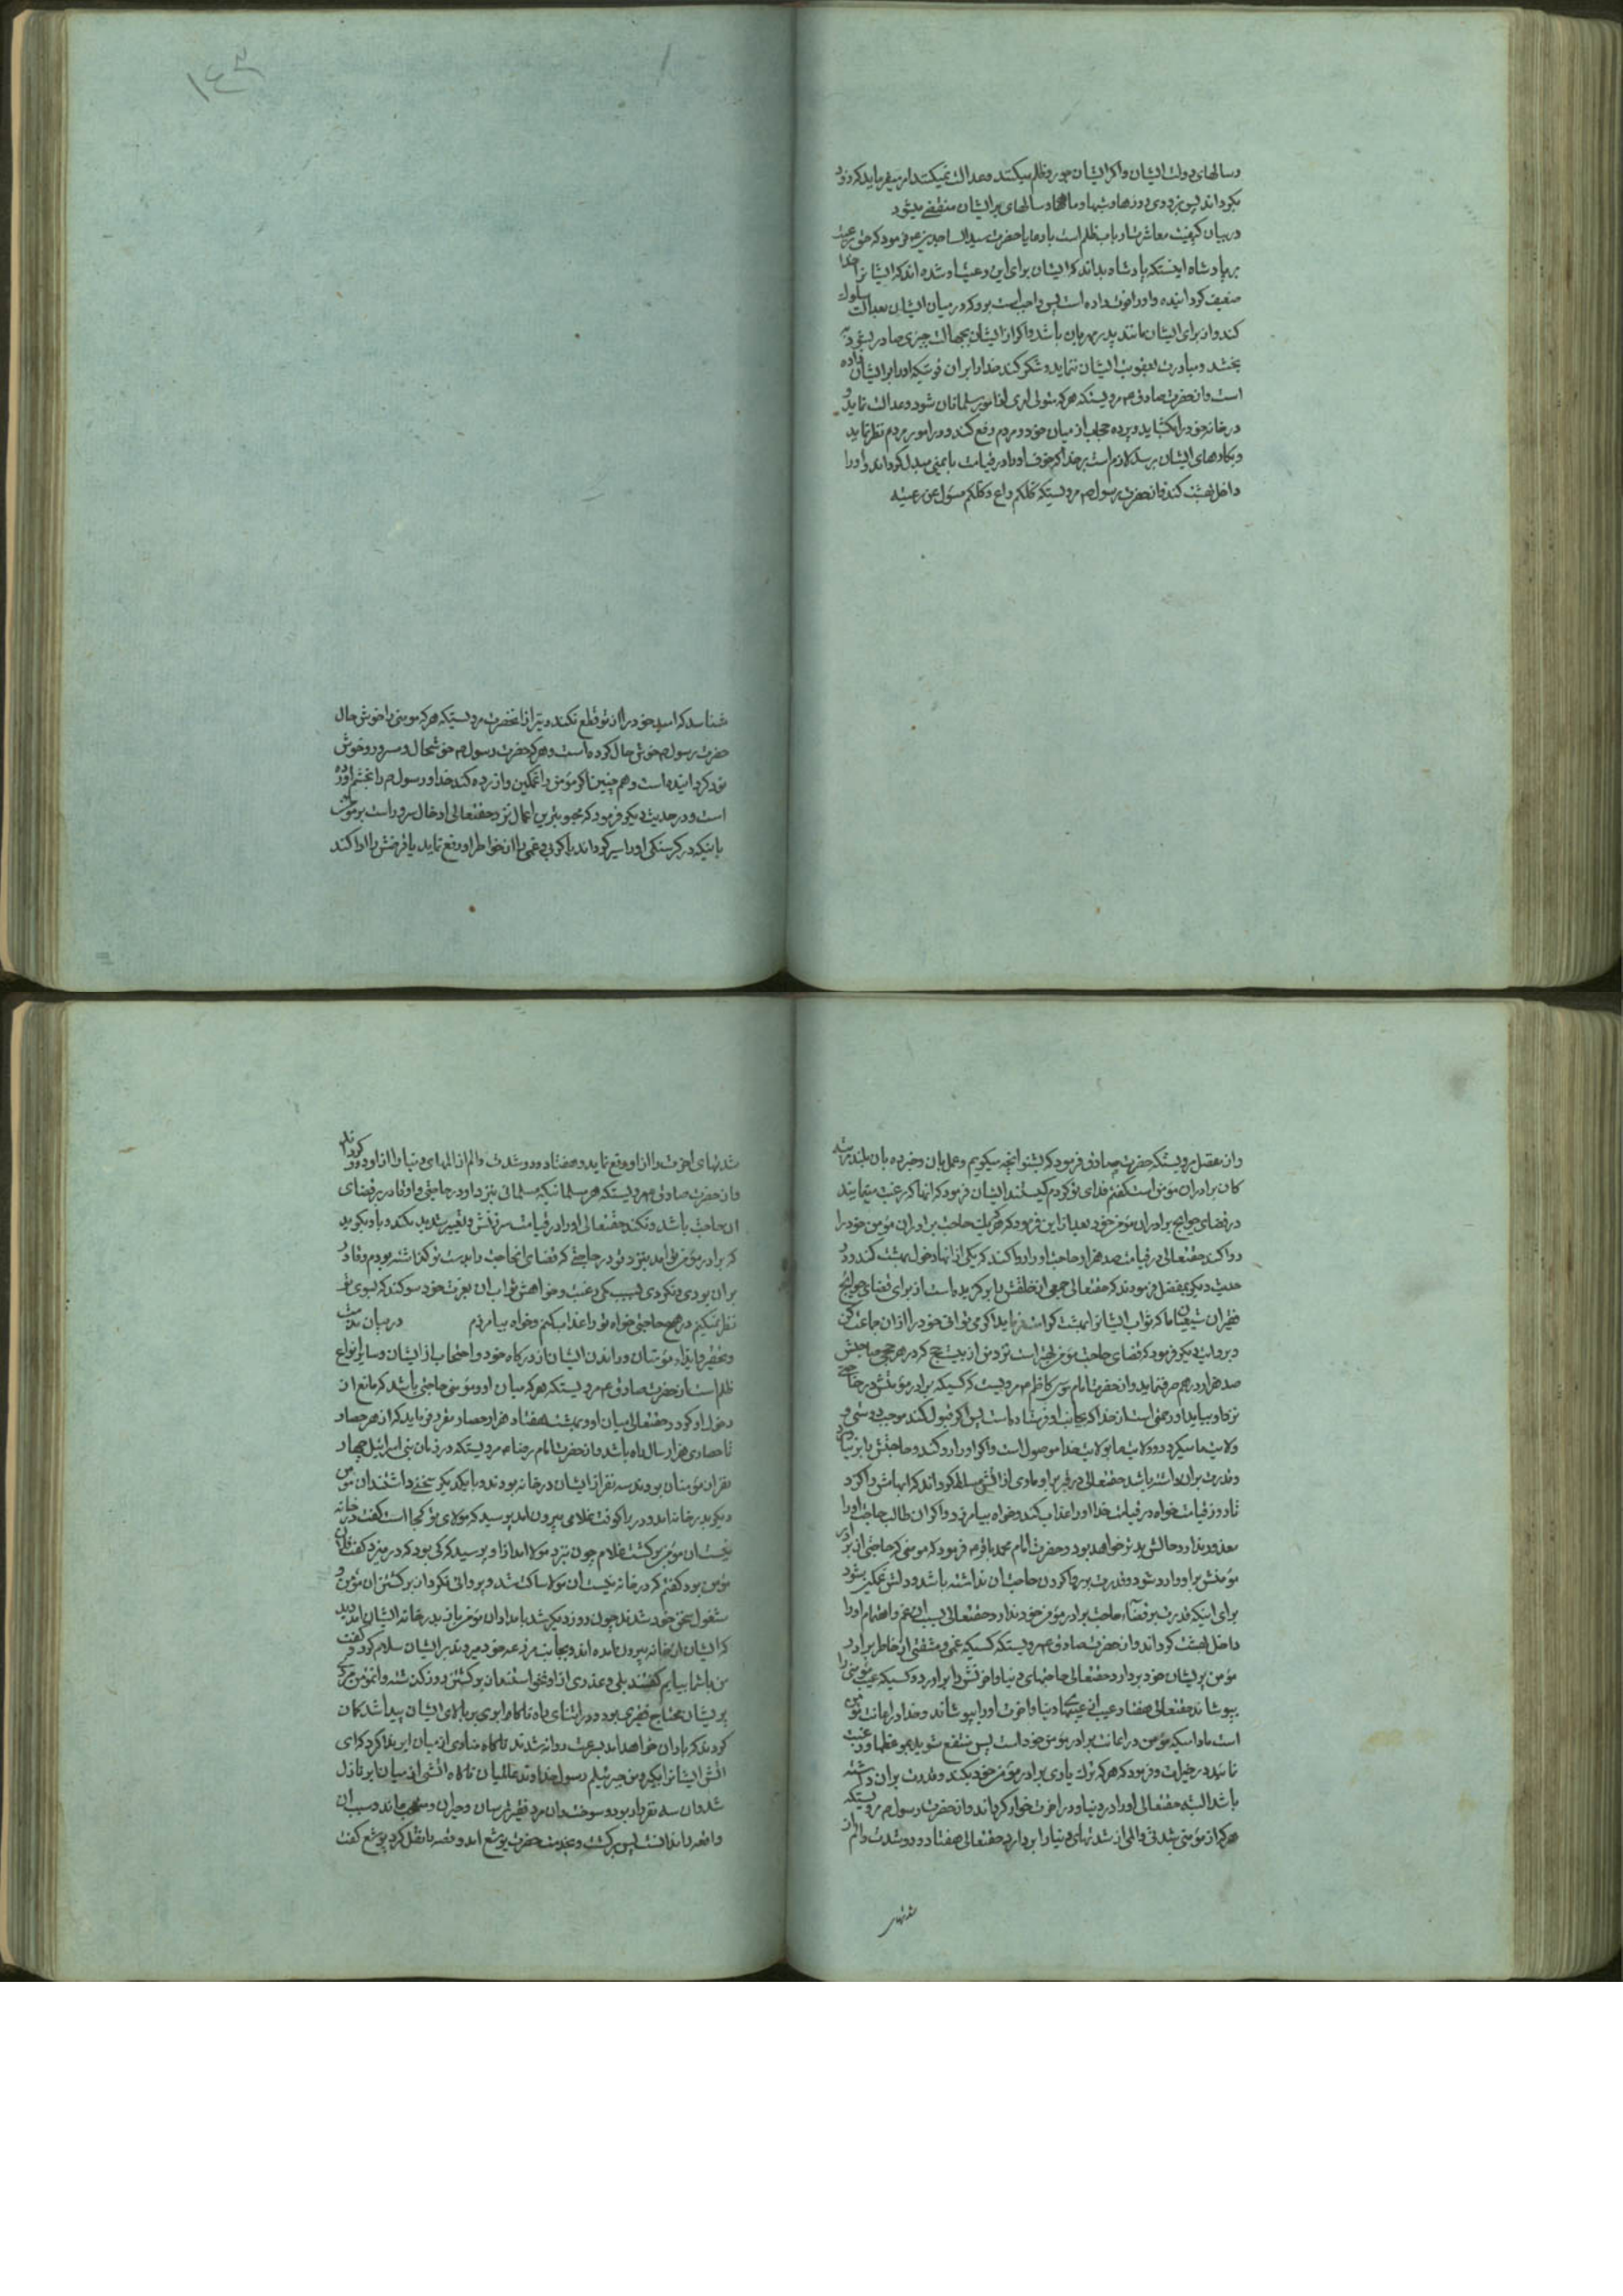 وسالهای دولت ایشان واکر ایشان جور وظلم میکنند وعدالت نمیکنند امر میفرماید که زود
بکرداند پس بزودی روزها وشبها وماهها وسالهای ایشان منقضی میشود
دربیان کیفیت معاشرت ارباب ظلم است با رعایا حضرت سید الساجدین ع فرمود که حق رعیت
بر پادشاه اینستکه پادشاه بداند که ایشان برای این رعیت او شده اند که ایشانرا خدا
ضعیف کردانیده واورا قوت داده است پس واجبست بر او که در میان ایشان بعدالت سلوک
کند واز برای ایشان مانند پدر مهربان باشد واکر از ایشان بجهالت چیزی صادر شود
بخشد ومبادرت بعقوبت ایشان ننماید وشکر کند خدا را بر ان قوتیکه اورا بر ایشان داده
است واز حضرت صادق ع مرویستکه هرکه متولی امری از امور مسلمانان شود وعدالت نماید و
در خانه خود را بکشاید وپرده حجاب از میان خود ومردم رفع کند ودر امور مردم نظر نماید
وبکارهای ایشان برسد لازم است بر خدا که خوف اورا در قیامت بایمنی مبدل کرداند واورا
داخل بهشت کند واز حضرت رسول ص مرویستکه کلکم راع وکلکم مسؤل عن رعیته
۱۴۳
شناسد که امید خود را از تو قطع نکند ونیز از انحضرت مرویستکه هرکه مومنی را خوش حال
حضرت رسول ص خوش حال کرده است وهرکه حضرت رسول ص خوشحال ومسرور وخوش
نود کردانیده است وهم چنین اکر مؤمن را غمکین وازرده کند خدا ورسول ص را بخشم اورده
است ودر حدیث دیکر فرمود که محبوبترین اعمال نزد حقتعالی ادخال سرور است بر مؤمن
باینکه در کرسنکی اورا سیر کرداند یا کربی وغمی را از خاطر او رفع نماید یا قرضش را ادا کند
واز مفضل مرویستکه حضرت صادق فرمود که بشنو انچه میکویم وعمل بان وخبر ده بان بلند مرتبه
کان برادران مؤمن است کفتم فدای تو کردم کیستند ایشان فرمود که انها که رغبت مینمایند
در قضای حوایج برادران مؤمن خود بعد از این فرمود که هرکه یک حاجت برادران مؤمن خود را
روا کند حقتعالی در قیامت صد هزار حاجت اورا روا کند که یکی از انها دخول بهشت کند ودر
حدیث دیکر بمفضل فرمودند که حقتعالی جمعی از خلقش را برکزیده است از برای قضای حوایج
فقیران شیعیان ما که ثواب ایشانرا بهشت کرامت فرماید اکر می توانی خود را از ان جماعت کن
وبروایت دیکر فرمود که قضای حاجت مؤمن بهتر است نزد من از بیست حج که در هر حجی صاحبش
صد هزار درهم صرف نماید واز حضرت امام موسی کاظم ع مرویست که کسیکه برادر مؤمنش در حاجتی
نزد او بیاید او رحمتی است از خدا که بجانب او فرستاده است پس اکر قبول کند موجب دوستی و
ولایت ما میکردد وولایت ما بولایت خدا موصول است واکر اورا رد کند وحاجتش را بر نیاورد
وقدرت بر ان داشته باشد حقتعالی در قبر بر او ماری از اتش مسلط کرداند که ابهامش را کزد
تا روز قیامت خواه در قیامت خدا اورا عذاب کند وخواه بیامرزد واکر ان طالب حاجت اورا
معذور ندارد حالش بدتر خواهد بود وحضرت امام محمد باقر ع فرمود که مومنی که حاجتی از برادر
مؤمنش بر او وارد شود وقدرت بر روا کردن حاجت ان نداشته باشد ودلش غمکین شود
برای اینکه قدرت بر قضاء حاجت برادر مؤمن خود ندارد حقتعالی بسبب ان غم واهتمام اورا
داخل بهشت کرداند واز حضرت صادق ع مرویستکه کسیکه غمی ومشقتی از خاطر برادر
مؤمن پریشان خود بردارد حقتعالی حاجتهای دنیا واخرتش را براورد وکسیکه عیب مؤمنی را
بپوشاند حقتعالی هفتاد عیب از عیبهای دنیا واخرت اورا بپوشاند وخدا در اعانت مؤمن
است مادامیکه مؤمن در اعانت برادر مؤمن خود است پس منتفع شوید بموعظها ورغبت
نمایید در خیرات وفرمود که هرکه ترک یاری برادر مؤمن خود بکند وقدرت بر ان داشته
باشد البته حقتعالی اورا در دنیا ودر اخرت خوار کرداند واز حضرت رسول ص مرویستکه
هرکه از مؤمنی شدتی والمی از شدتهای دنیا را بردارد حقتعالی هفتاد ودو شدت والم از
شدتهای
شدتهای اخرت را از او رفع نماید وهفتاد ودو شدت والم از المهای دنیا را از او دور کرداند
واز حضرت صادق ع مرویستکه هر مسلمانیکه مسلمانی بنزد او در حاجتی واو قادر بر قضای
ان حاجت باشد ونکند حقتعالی اورا در قیامت سرزنش وتعییر شدید بکند وباو بکوید
که برادر مؤمن تو امد بنزد تو در حاجتی که قضای انحاجت را بدست تو کذاشته بودم وقادر
بر ان بودی ونکردی بسبب کمی رغبت وخواهش ثواب ان بعزت خود سوکند که بسوی تو
نظر نمیکنم در هیچ حاجتی خواه تو را عذاب کنم وخواه بیامرزم    در میان مذمت
وتحقیر وایذاء مؤمنان وراندن ایشان از درکاه خود واحتجاب از ایشان وسایر انواع
ظلم است از حضرت صادق ع مرویستکه هرکه میان او ومؤمنی حاجبی باشد که مانع از
دخول او کردد حقتعالی میان او وبهشت هفتاد هزار حصار مقرر فرماید که از هر حصار
تا حصاری هزار سال راه باشد واز حضرت امام رضا ع مرویستکه در زمان بنی اسرائیل چهار
نفر از مؤمنان بودند سه نفر از ایشان در خانه بودند وبا یکدیکر سخنی داشتند ان مؤمن
دیکر بدر خانه امد ودر را کوفت غلامی بیرون امد پرسید که مولای تو کجا است کفت در خانه
نیست ان مؤمن برکشت غلام چون نزد مولا امد از او پرسید که کی بود که در میزد کفت فلان
مؤمن بود کفتم که در خانه نیست ان مولا ساکت شد وپروائی نکرد از برکشتن ان مؤمن و
مشغول سخن خود شدند چون روز دیکر شد بامداد ان مؤمن باز بدر خانه ایشان امد دید
که ایشان از خانه بیرون امده اند وبجانب مزرعه خود میروند بر ایشان سلام کرد وکفت
من باشما بیایم کفتند بلی وعذری از او نخواستند از برکشتن روز کذشته وانمؤمن مردی
پریشان محتاج فقیری بود ودر اثنای راه ناکاه ابری بر بالای ایشان پیدا شد کمان
کردند که باران خواهد امد بسرعت روانه شدند ناکاه منادی از میان ابر ندا کرد که ای
اتش ایشانرا بکیر ومن جبرئیلم رسول خداوند عالمیان ناکاه اتشی از میان ابر نازل
شد وان سه نفر را ربود وسوخت وان مرد فقیر ترسان وحیران ومتعجب ماند وسبب ان
واقعه را ندانست پس برکشت وبخدمت حضرت یوشع امد وقصه را نقل کرد یوشع کفت